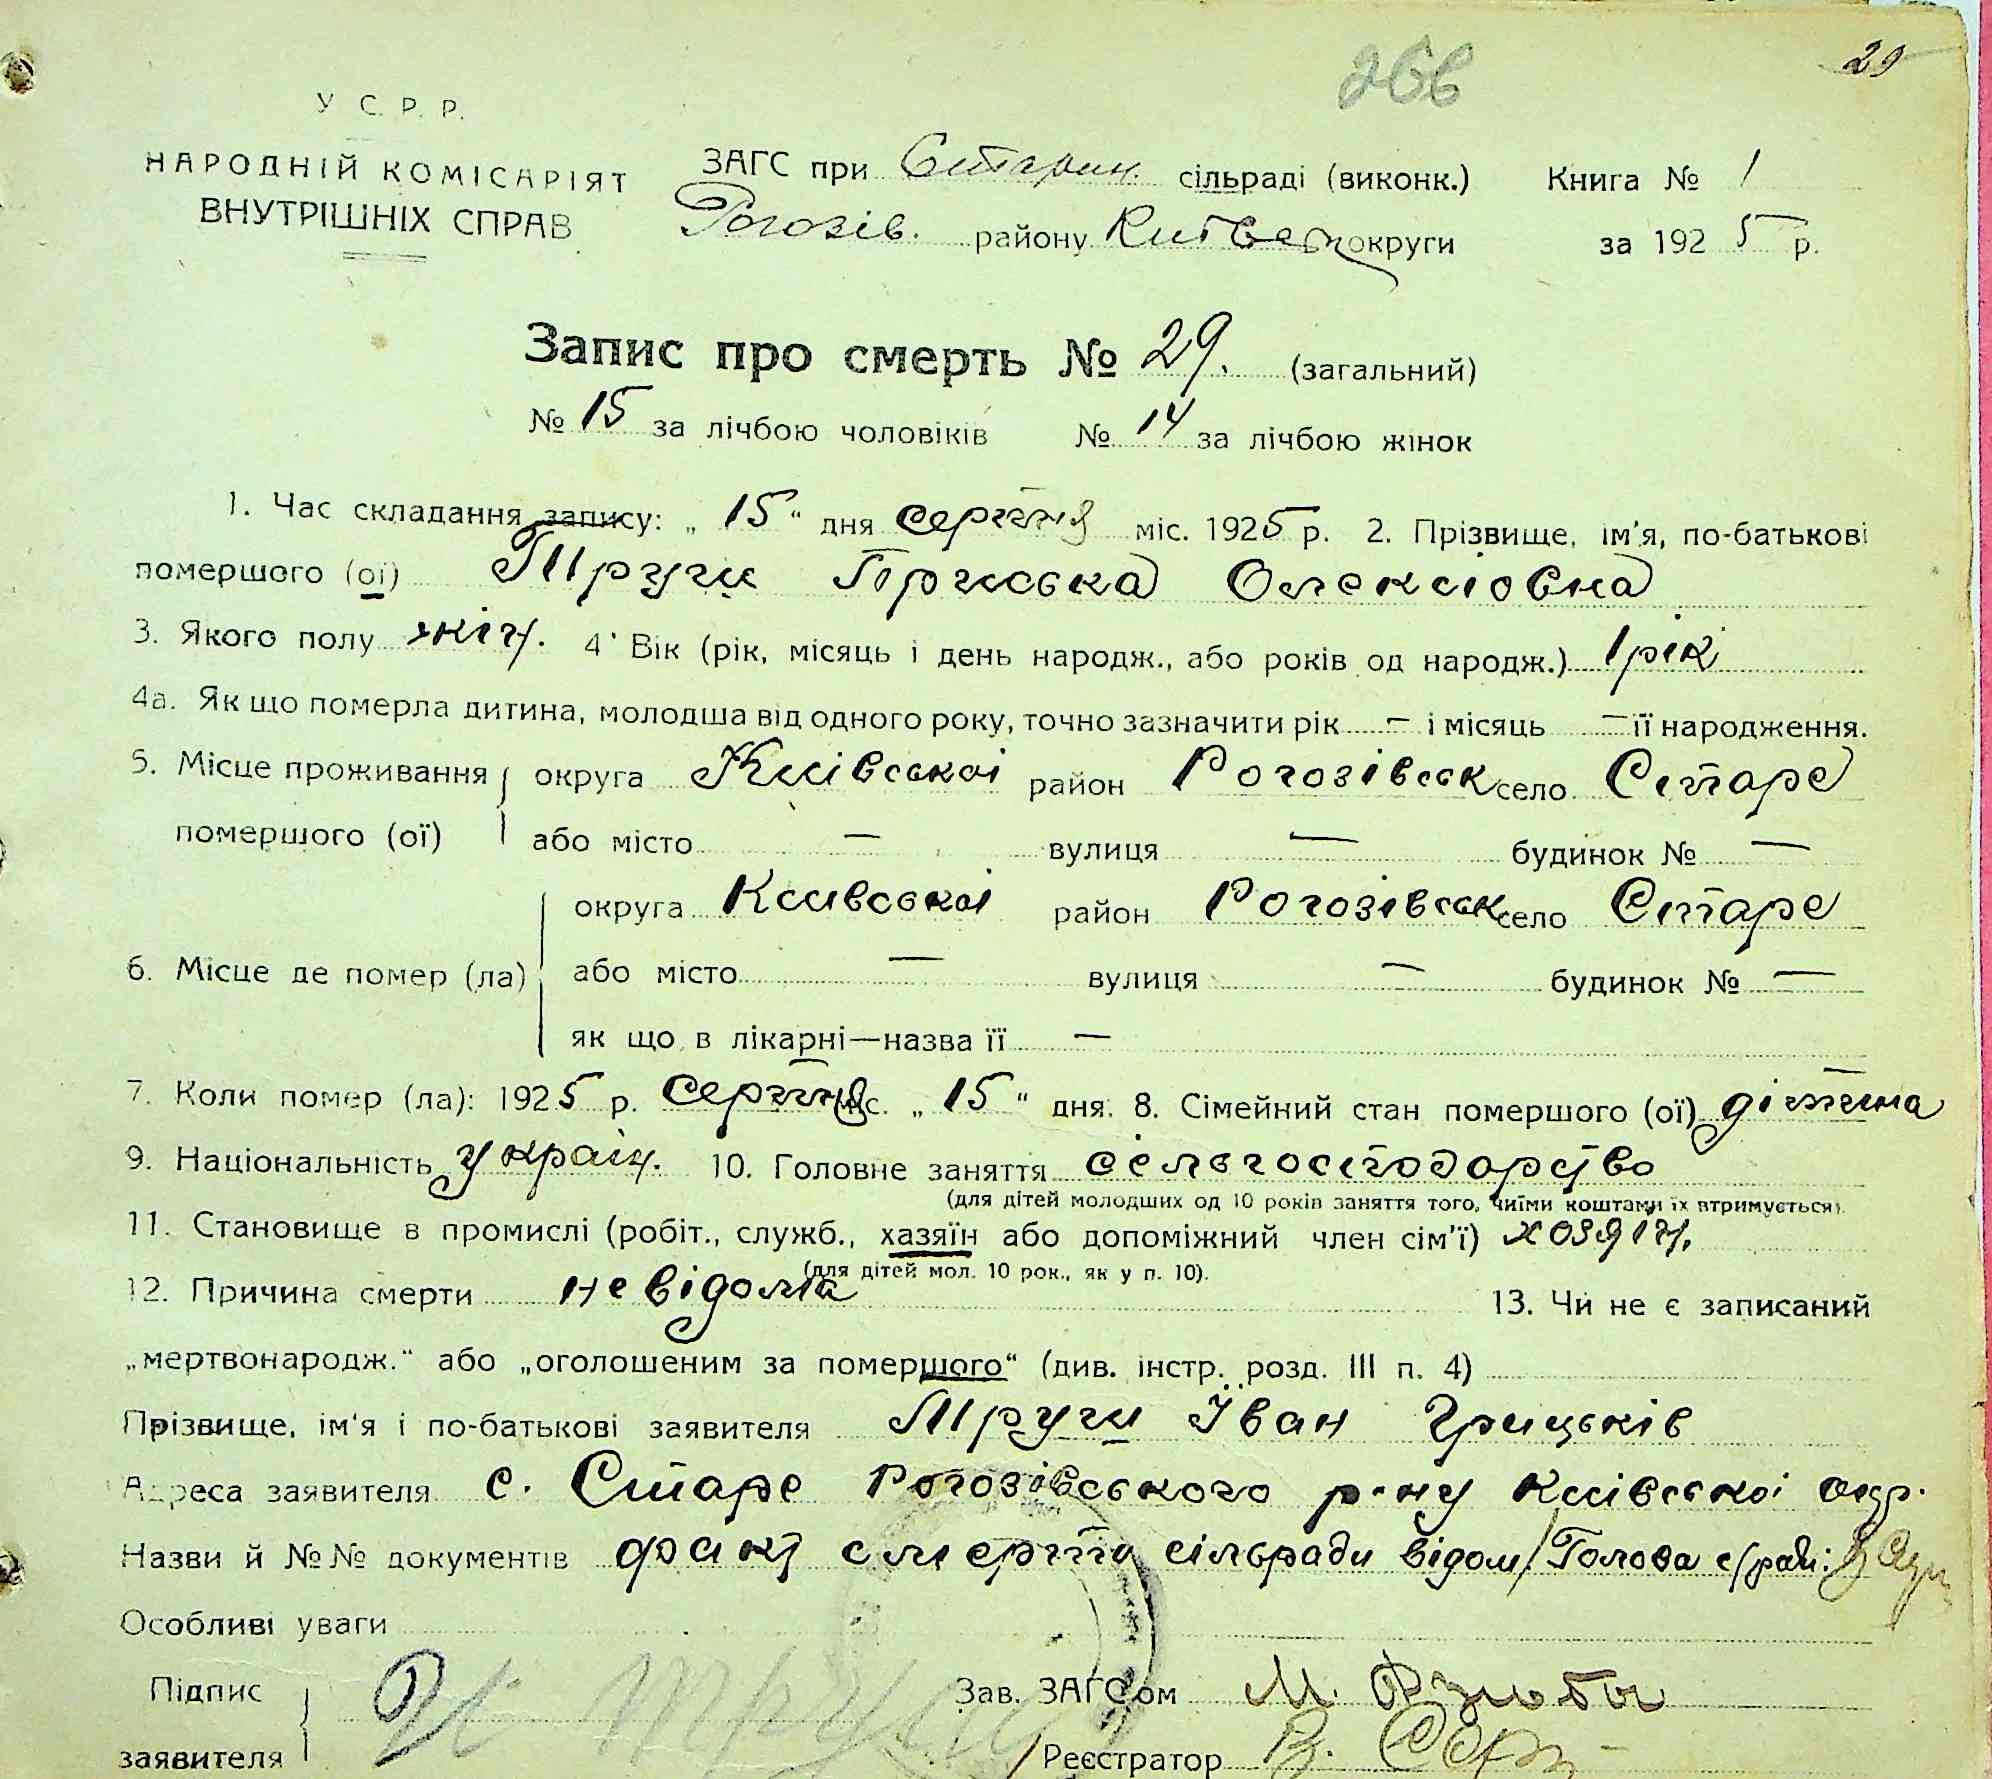 266 29
У С. Р. Р.
НАРОДНІЙ КОМІСАРІЯТ
ВНУТРІШНІХ СПРАВ
ЗАГС при Старин. сільраді (виконк.) Книга № 1
Рогозів. району Київськ округи за 1925 р.
Запис про смерть № 29. (загальний)
№ 15 за лічбою чоловіків № 14 за лічбою жінок
1. Час складання запису: „ 15 “ дня серпня міс. 1925 р. 2. Прізвище, ім'я, по-батькові
помершого (ої) Олексіовна
3. Якого полу жіч. 4 Вік (рік, місяць і день народж., або років од народж.) 1 рік
4а. Як що померла дитина, молодша від одного року, точно зазначити рік — і місяць — її народження.
5. Місце проживання округа Київської район Рогозівськ село Старе
помершого (ої) або місто — вулиця — будинок № —
округа Київської район Рогозівськ село Старе
6. Місце де помер (ла) або місто — вулиця — будинок № —
як що в лікарні—назва її —
7. Коли помер (ла): 1925 р. серпня міс. „ 15 “ дня. 8. Сімейний стан помершого (ої) дітина
9. Національність україн. 10. Головне заняття сельгосподарство
(для дітей молодших од 10 років заняття того, чиїми коштами їх втримується).
11. Становище в промислі (робіт., служб., хазяїн або допоміжний член сім'ї) хозяін.
(для дітей мол. 10 рок., як у п. 10).
12. Причина смерти невідома 13. Чи не є записаний
„мертвонародж.“ або „оголошеним за помершого“ (див. інстр. розд. III п. 4)
Прізвище, ім'я і по-батькові заявителя Іван Грицьків
Адреса заявителя с. Старе Рогозівського р-ну Київської окр.
Назви й №№ документів факт смерти сільради відом / Голова с/ради:
Особливі уваги
Підпис Зав. ЗАГС'ом М.
заявителя Реєстратор В.